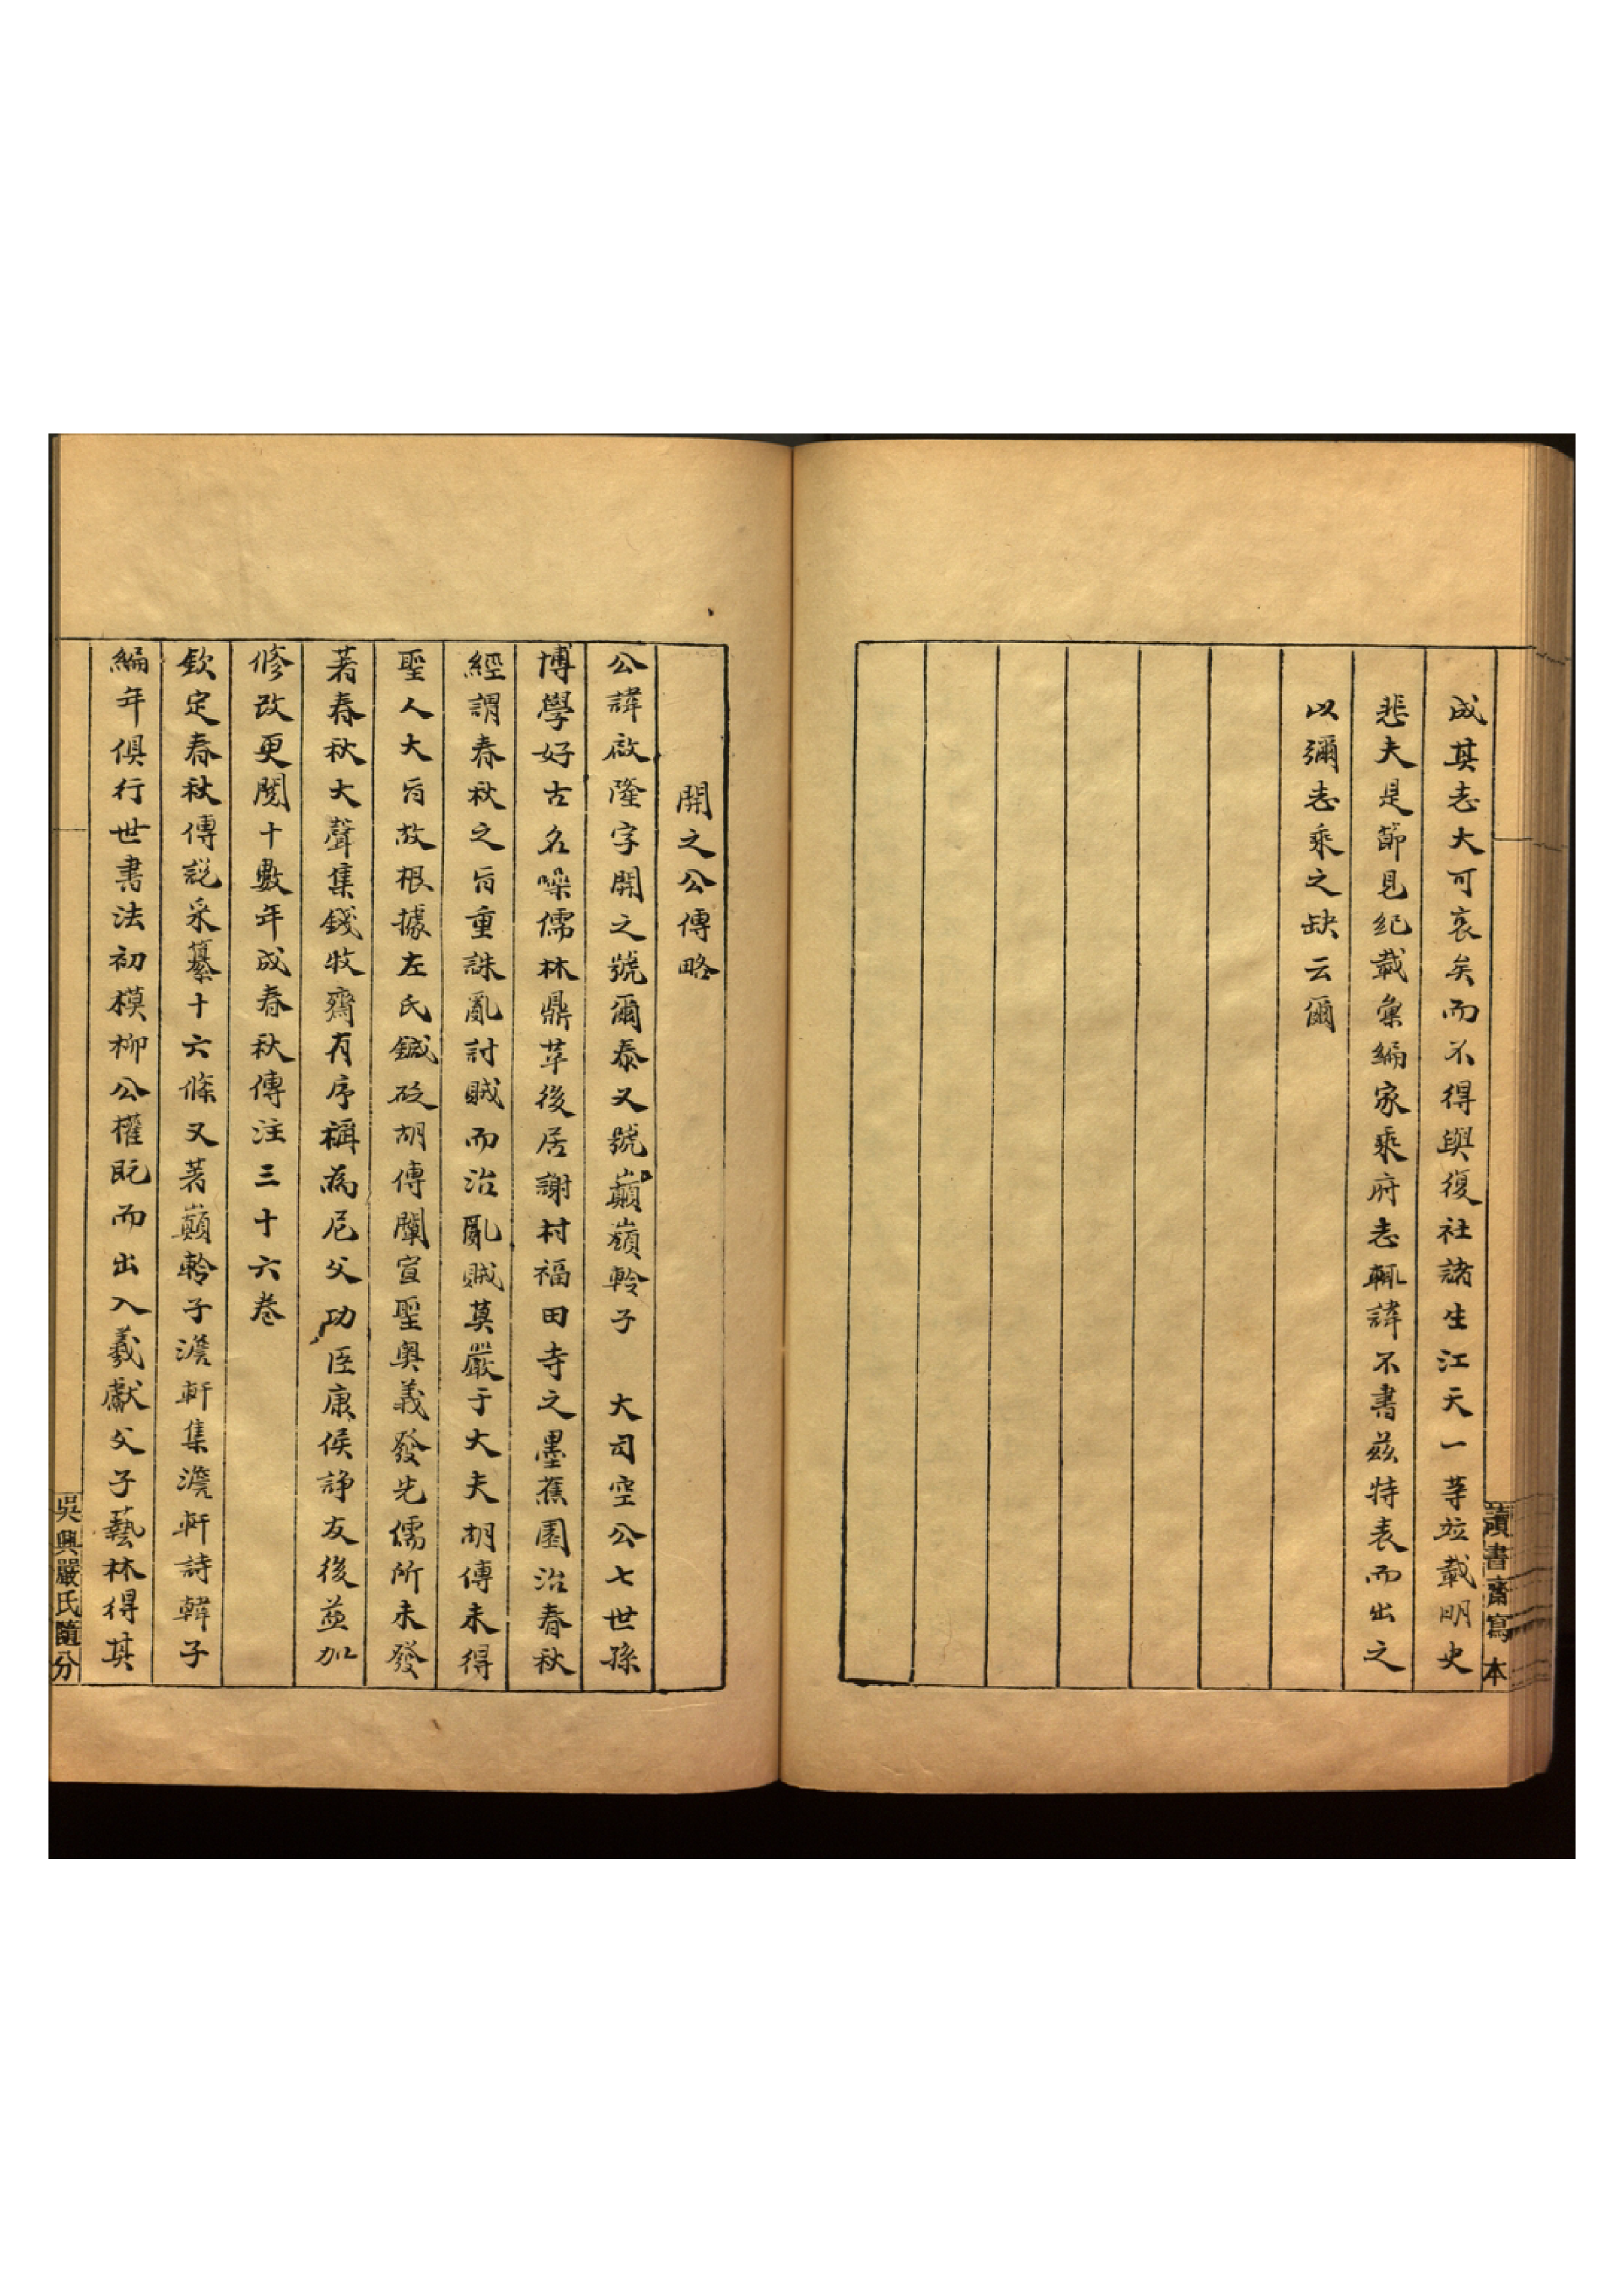 成其志大可哀矣而不得與復社諸生江天一等竝載明史
悲夫是節見紀載彙編家乘府志輒諱不書茲特表而出之
以彌志乘之缺云爾
讀書齋寫本
開之公傳略
公諱啟隆字開之號爾泰又號巔嶺軨子 大司空公七世孫
博學好古名噪儒林鼎革後居謝村福田寺之墨蕉園治春秋
經謂春秋之旨重誅亂討賊而治亂賊莫嚴于大夫胡傳未得
聖人大旨故根據左氏鍼砭胡傳闡宣聖奧義發先儒所未發
著春秋大聲集錢牧齋有序稱為尼父功臣康侯諍友後益加
修改更閱十數年成春秋傳注三十六卷
欽定春秋傳說采纂十六條又著巔軨子澹軒集澹軒詩韓子
編年俱行世書法初模柳公權既而出入羲獻父子藝林得其
吳興嚴氏隨分